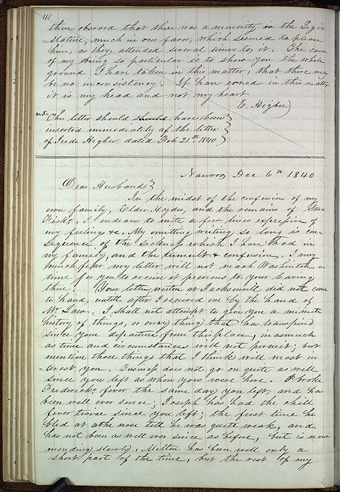 then observed that there was a minority in the Legis
lature, much in our favor, which seemed to please
him, as they attended several times to it. The cause
of my being so particular is to show you the whole
ground I have taken in this matter; that there may
be no inconsistency. If I have erred in this matter
it is my head and not my heart
E. Higbee
This letter should should have been
inserted immediately after the letter
dated Feb 21st 1840
Nauvoo Dec 6th 1840
Dear Husband
In the midst of the confusion of my
own family, Elder and the remains of Geo
I endeavor to write a few pure expression of
my feeling &c. My omitting writing so long is con
sequence, of the sickness which I have had in
my family, and the tumult & confusion, I very
much fear my letter will not reach Washington in
time for you to receive it previous to your leaving
there. Your letter, written at Jacksonvill did not come
to hand, untill after I received one by the hand of
Mr. Law. I shall not attempt to give you a minute
history of things, or every thing, that has transpired
since your departure from this place, inasmuch
as time and circumstances will not permit; but
mention those things that I think will most in
terest you. Business does not go on quite as well
since you left as when you were here.
Frederick the same day you left, and has
been well ever since; Joseph has had the chill
fever twice since you left; the first time he
bled at the nose till he was quite weak, and
has not been as well ever since as before, but is now
mending slowly. has been well only a
short part of the time, but the rest of my